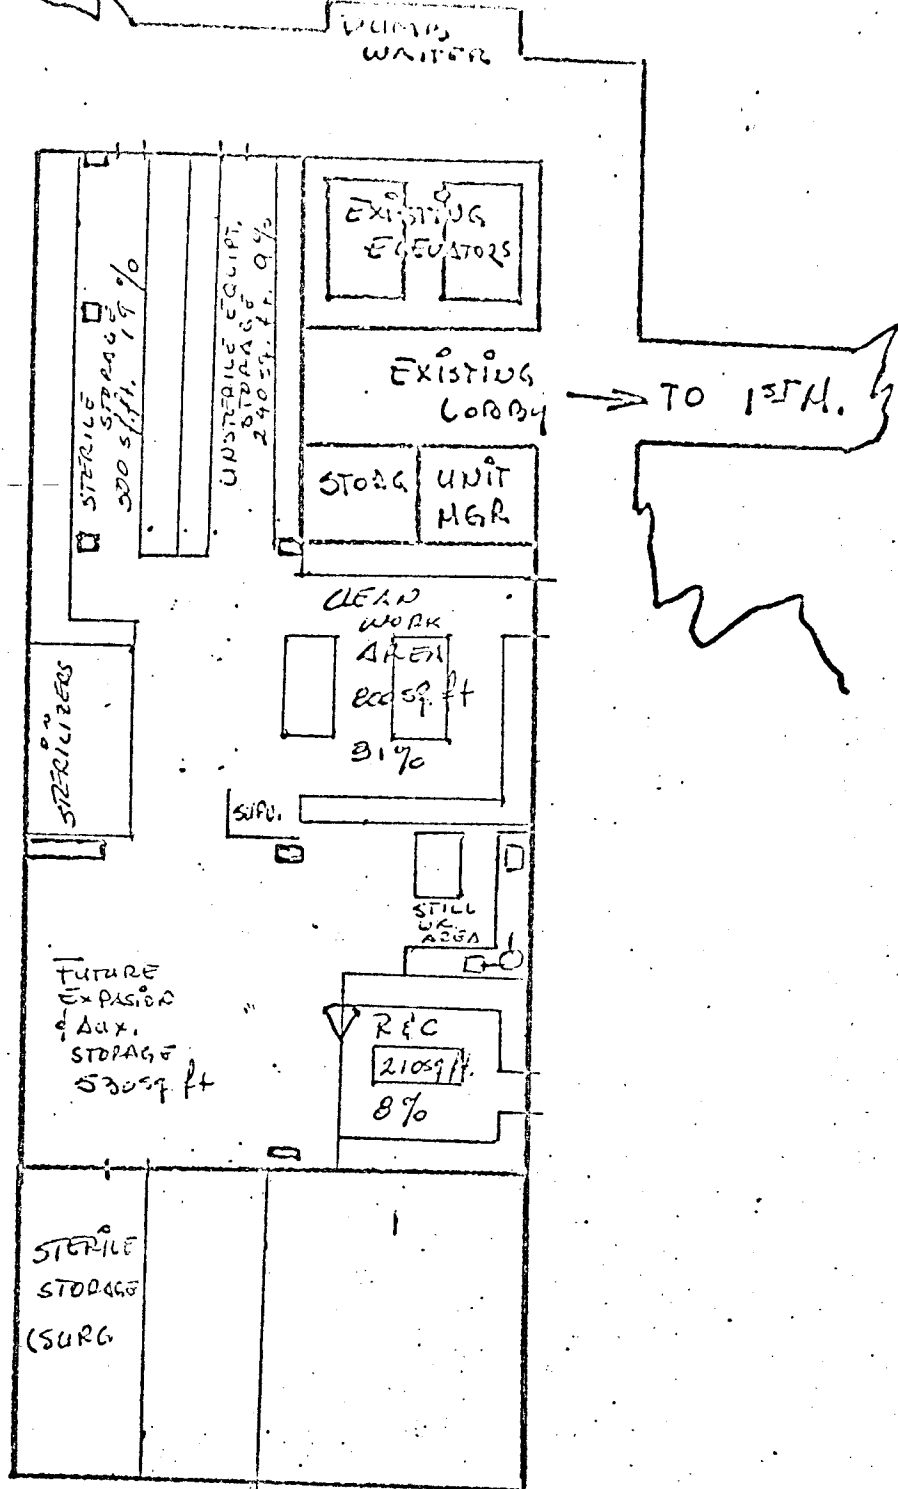 DUMB
WAITER
EXISTING
ELEVATORS
STERILE
STORAGE
500 sq.ft. 19%
UNSTERILE EQUIPT.
STORAGE
240 sq. ft. 9%
EXISTING
LOBBY
TO 1ST H.
STORG
UNIT
MGR
CLEAN
WORK
AREA
800 sq. ft
31%
STERILIZERS
SUPV.
STILL
WK.
AREA
FUTURE
EXPASION
& AUX.
STORAGE
530 sq. ft
R & C
210 sq ft.
8%
STERILE
STORAGE
(SURG